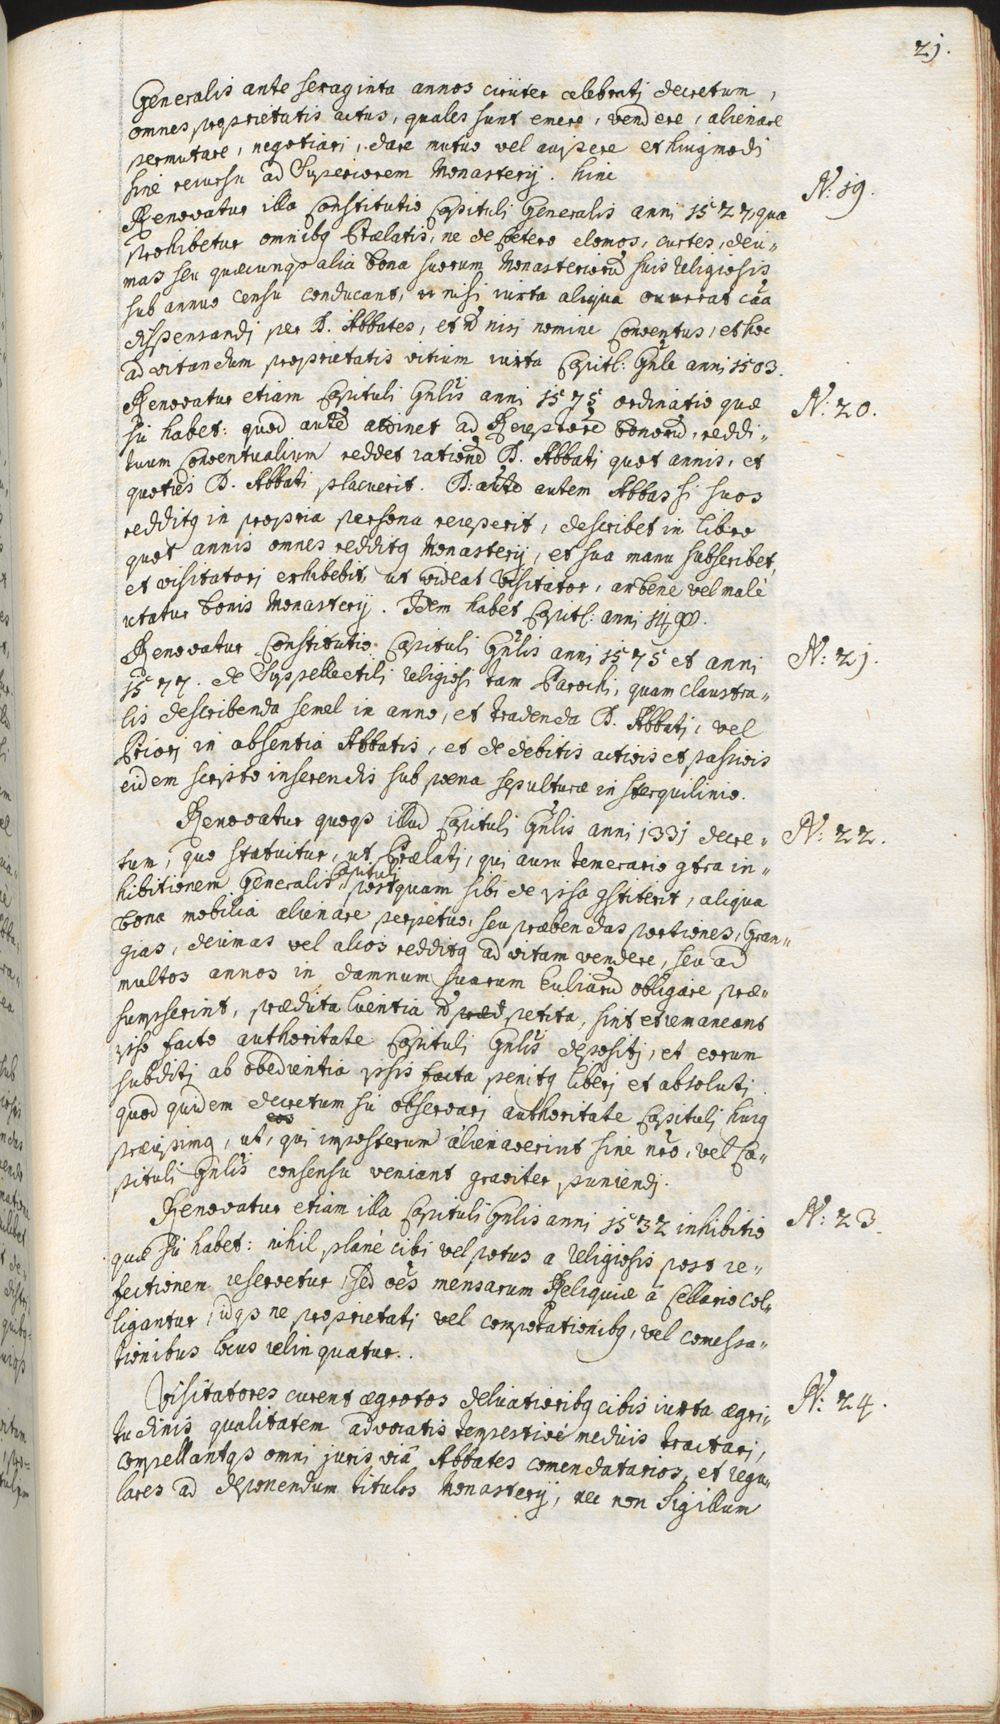 21.
Generalis ante sexaginta annos circiter celebratj decretum,
omnes proprietatis actus, quales sunt emere, vendere, alienare
permutare, negotiari, dare mutuo vel accipere et huiusmodi
sine recursu ad Superiorem Monasterij. hinc
N: 19.
Renovatur illa Constitutio Capituli Generalis anni 1527, qua
prohibetur omnibq Prælatis, ne de cætero domos, curtes, deci„
mas seu quæcunqs alia bona suorum Monasteriorũ suis religiosis
sub annuo censu conducant, nisi iuxta aliqua occurrat cãa
dispensandj per D. Abbates, et nisi nomine Conventus, et hoc
ad vitandum proprietatis vitium iuxta Capitl: Gñle anni 1503.
N: 20.
Renovatur etiam Capituli Gñlis anni 1575 ordinatio quæ
sic habet: quod autẽ attinet ad Receptorẽ bonorũ, reddi„
tuum Conventualium reddet rationẽ D. Abbati quot annis, et
quoties D. Abbati placuerit. D: autem Abbas si suos
redditq in propria persona receperit, describet in libro
quot annis omnes redditq Monasterij, et sua manu subscribet,
et visitatorj exhibebit, ut videat Visitator, an bene vel malè
utatur bonis Monasterij. Idem habet Capitl: anni
N: 21.
Renovatur Constitutio Capituli Gñlis anni 1575 et anni
1577. de Suppellectili religiosi tam Parochi, quam claustra„
lis describenda semel in anno, et tradenda D. Abbatj, vel
Priorj in absentia Abbatis, et de debitis activis et passivis
eidem scripto inserendis sub pœna sepulturæ in sterquilinio.
N: 22.
Renovatur quoqs illud Capituli Gñlis anni 1331 decre„
tum, quo statuitur, ut Prælatj, qui ausu temerario gtra in„
hibitionem Generalis Capituli, postquam sibi de ipsa gstiterit, aliqua
bona mobilia alienare perpetuo, seu præbendas portiones, Gran„
gias, decimas vel alios redditq ad vitam vendere, seu ad
multos annos in damnum suarum Ecclĩarũ obligare præ„
sumpserint, prædicta licentia petita, sint et remaneant
ipso facto authoritate Capituli Gñlis depositj, et eorum
subditj ab obedientia ipsis facta penitq liberj et absolutj
quod quidem decretum sic observarj authoritate Capitulj huiq
præcipimq, ut eos, qui imposterum alienaverint sine nrõ, vel Ca„
pituli Gñlis consensu veniant graviter puniendj.
N: 23
Renovatur etiam illa Capituli Gñlis anni 1532 inhibitio
quæ sic habet: nihil planè cibi vel potus a religiosis post re„
fectionem reservetur, sed oẽs mensarum Reliquiæ à Cellario col„
ligantur, idqs ne proprietatj vel compotationibq, vel comessa„
tionibus locus relinquatur.
N: 24.
Visitatores curent ægrotos delicatioribq cibis iuxta ægri„
tudinis qualitatem advocatis tempestivè medicis tractarj,
compellantqs omni juris viâ Abbates comendatarios, et regu„
lares ad deponendum titulos Monasterij, nec non Sigillum